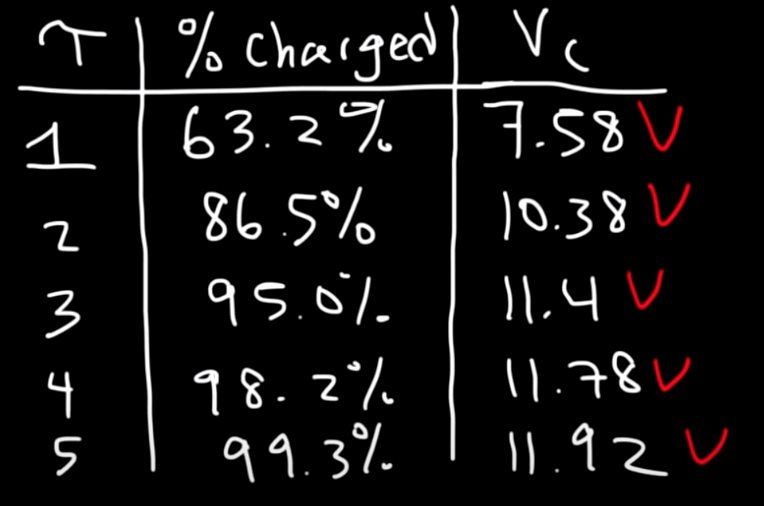 τ % charged Vc
1 63.2% 7.58 V
2 86.5% 10.38 V
3 95.0% 11.4 V
4 98.2% 11.78 V
5 99.3% 11.92 V